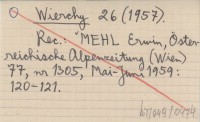 Wierchy 26 (1957).
Rec.: "MEHL Erwin, Öster-
reichische Alpenzeitung (Wien)
77, nr 1305, Mai-Juni 1959:
120-121.